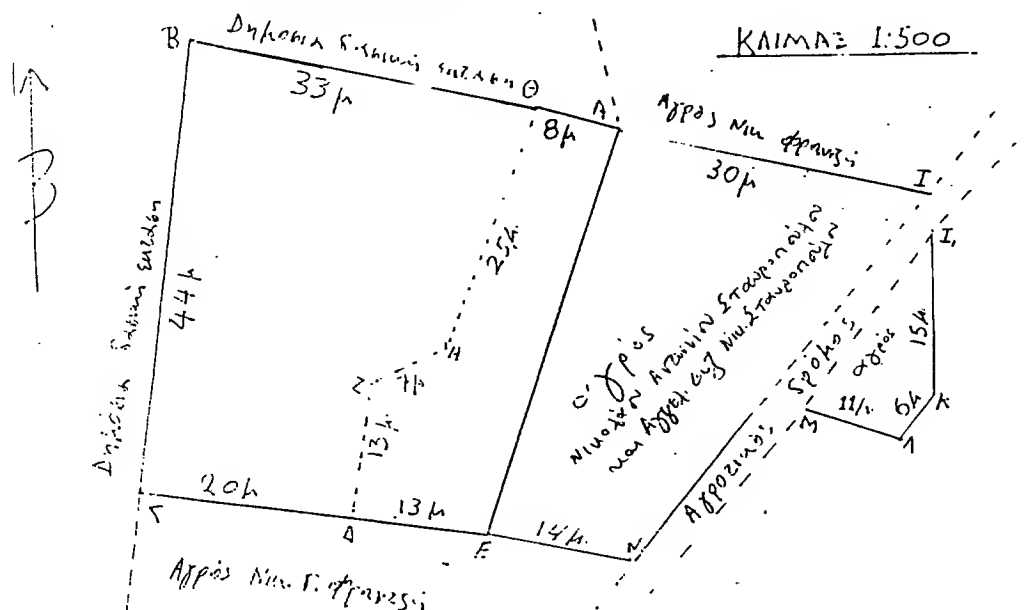 ΚΛΙΜΑΞ 1:500
Β
Δημόσια δασική έκταση
Θ
Α
33 μ
8 μ
Αγρός Νικ Φραγκή
30 μ
Ι
Ι,
Β
Δημόσια δασική έκταση
44 μ
25 μ.
Η
Ζ
7 μ
13 μ
αγρός
Νικολάου Αντωνίου Σταυροπούλου
και Αγγελ. συζ Νικ. Σταυροπούλου
Αγροτικός δρόμος
αγρός
15 μ.
11 μ.
6 μ
Κ
Λ
Γ
20 μ
Δ
13 μ
Ε
14 μ.
Αγρός Νικ. Γ.